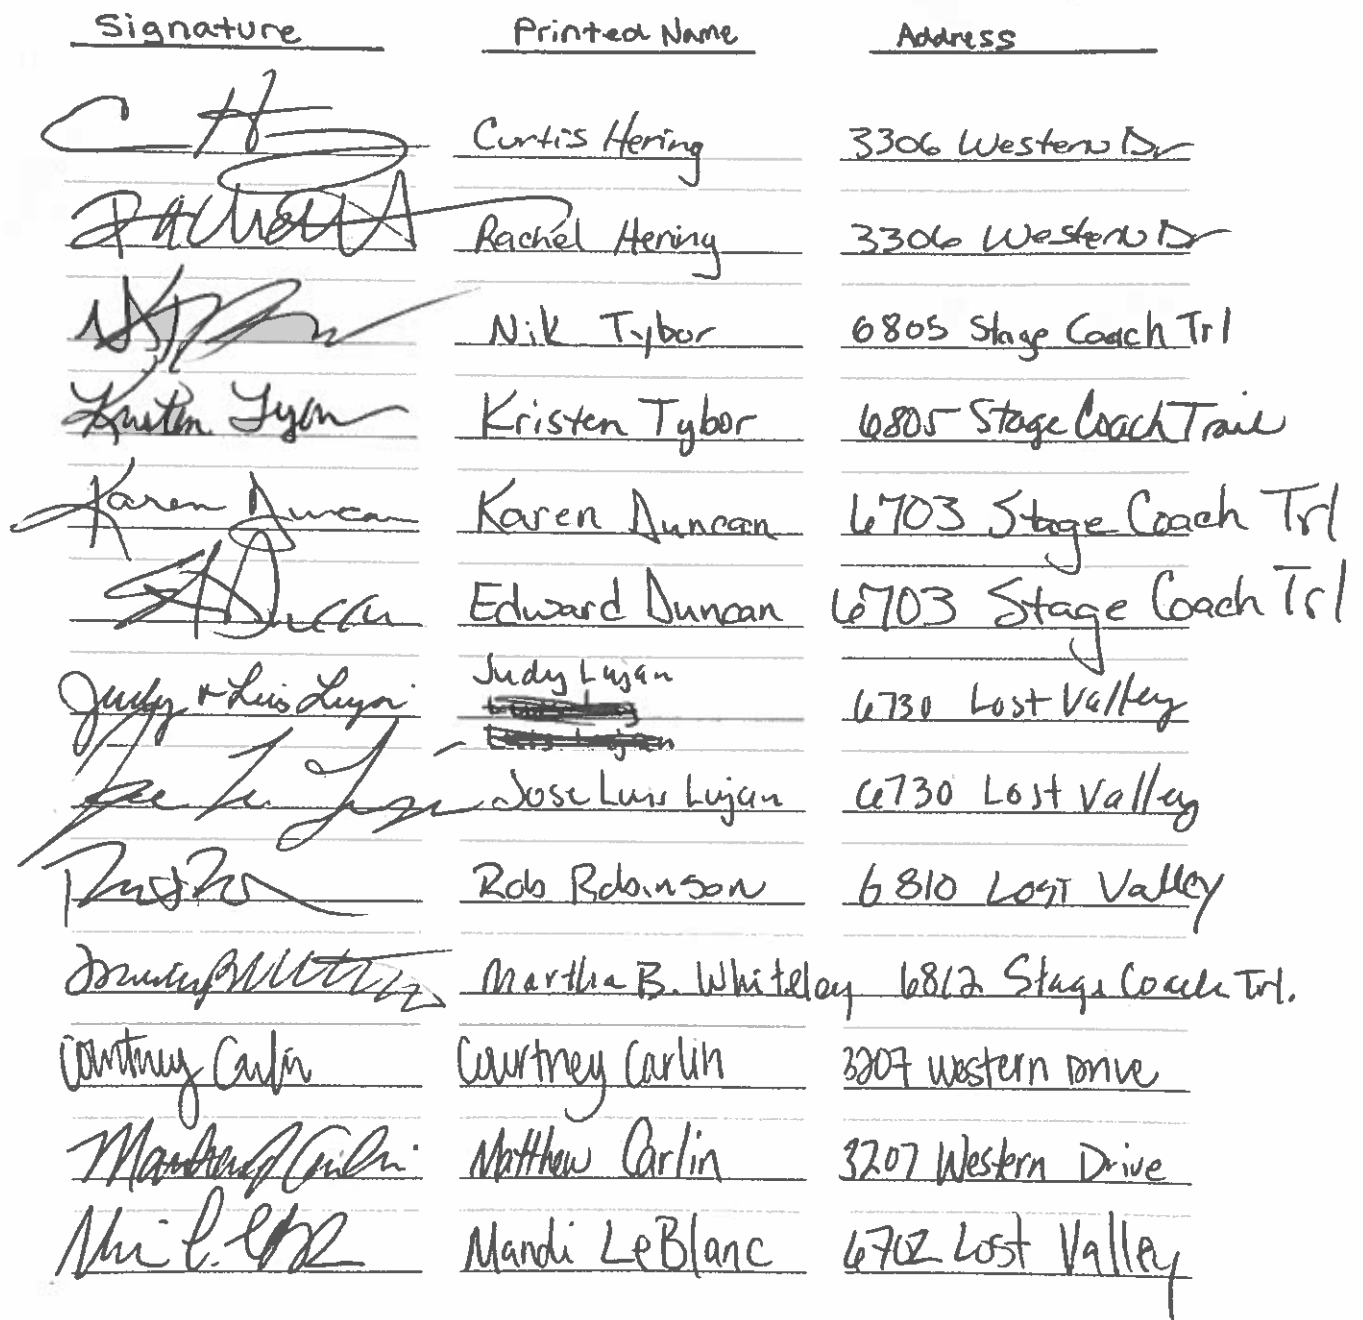 Signature Printed Name Address
Curtis Hering 3306 Western Dr
Rachel Hering 3306 Western Dr
Nik Tybor 6805 Stage Coach Trl
Kristen Tybor 6805 Stage Coach Trail
Karen Duncan Karen Duncan 6703 Stage Coach Trl
Duncan Edward Duncan 6703 Stage Coach Trl
Judy + Luis Lujan Judy Lujan 6730 Lost Valley
Jose Luis Lujan 6730 Lost Valley
Rob Robinson 6810 Lost Valley
Martha B. Whiteley 6812 Stage Coach Trl.
Courtney Carlin Courtney Carlin 3207 Western Drive
Matthew Carlin 3207 Western Drive
Mandi LeBlanc 6702 Lost Valley